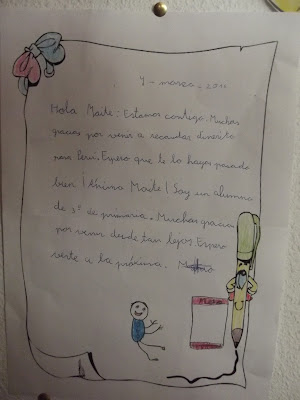 4 - marzo - 2011
Hola Maite: Estamos contigo. Muchas
gracias por venir a recaudar dinerito
para Perú. Espero que te lo hayas pasado
bien ¡Animo Maite! Soy un alumno
de 3º de primaria. Muchas gracias
por venir desde tan lejos. Espero
verte a la próxima.